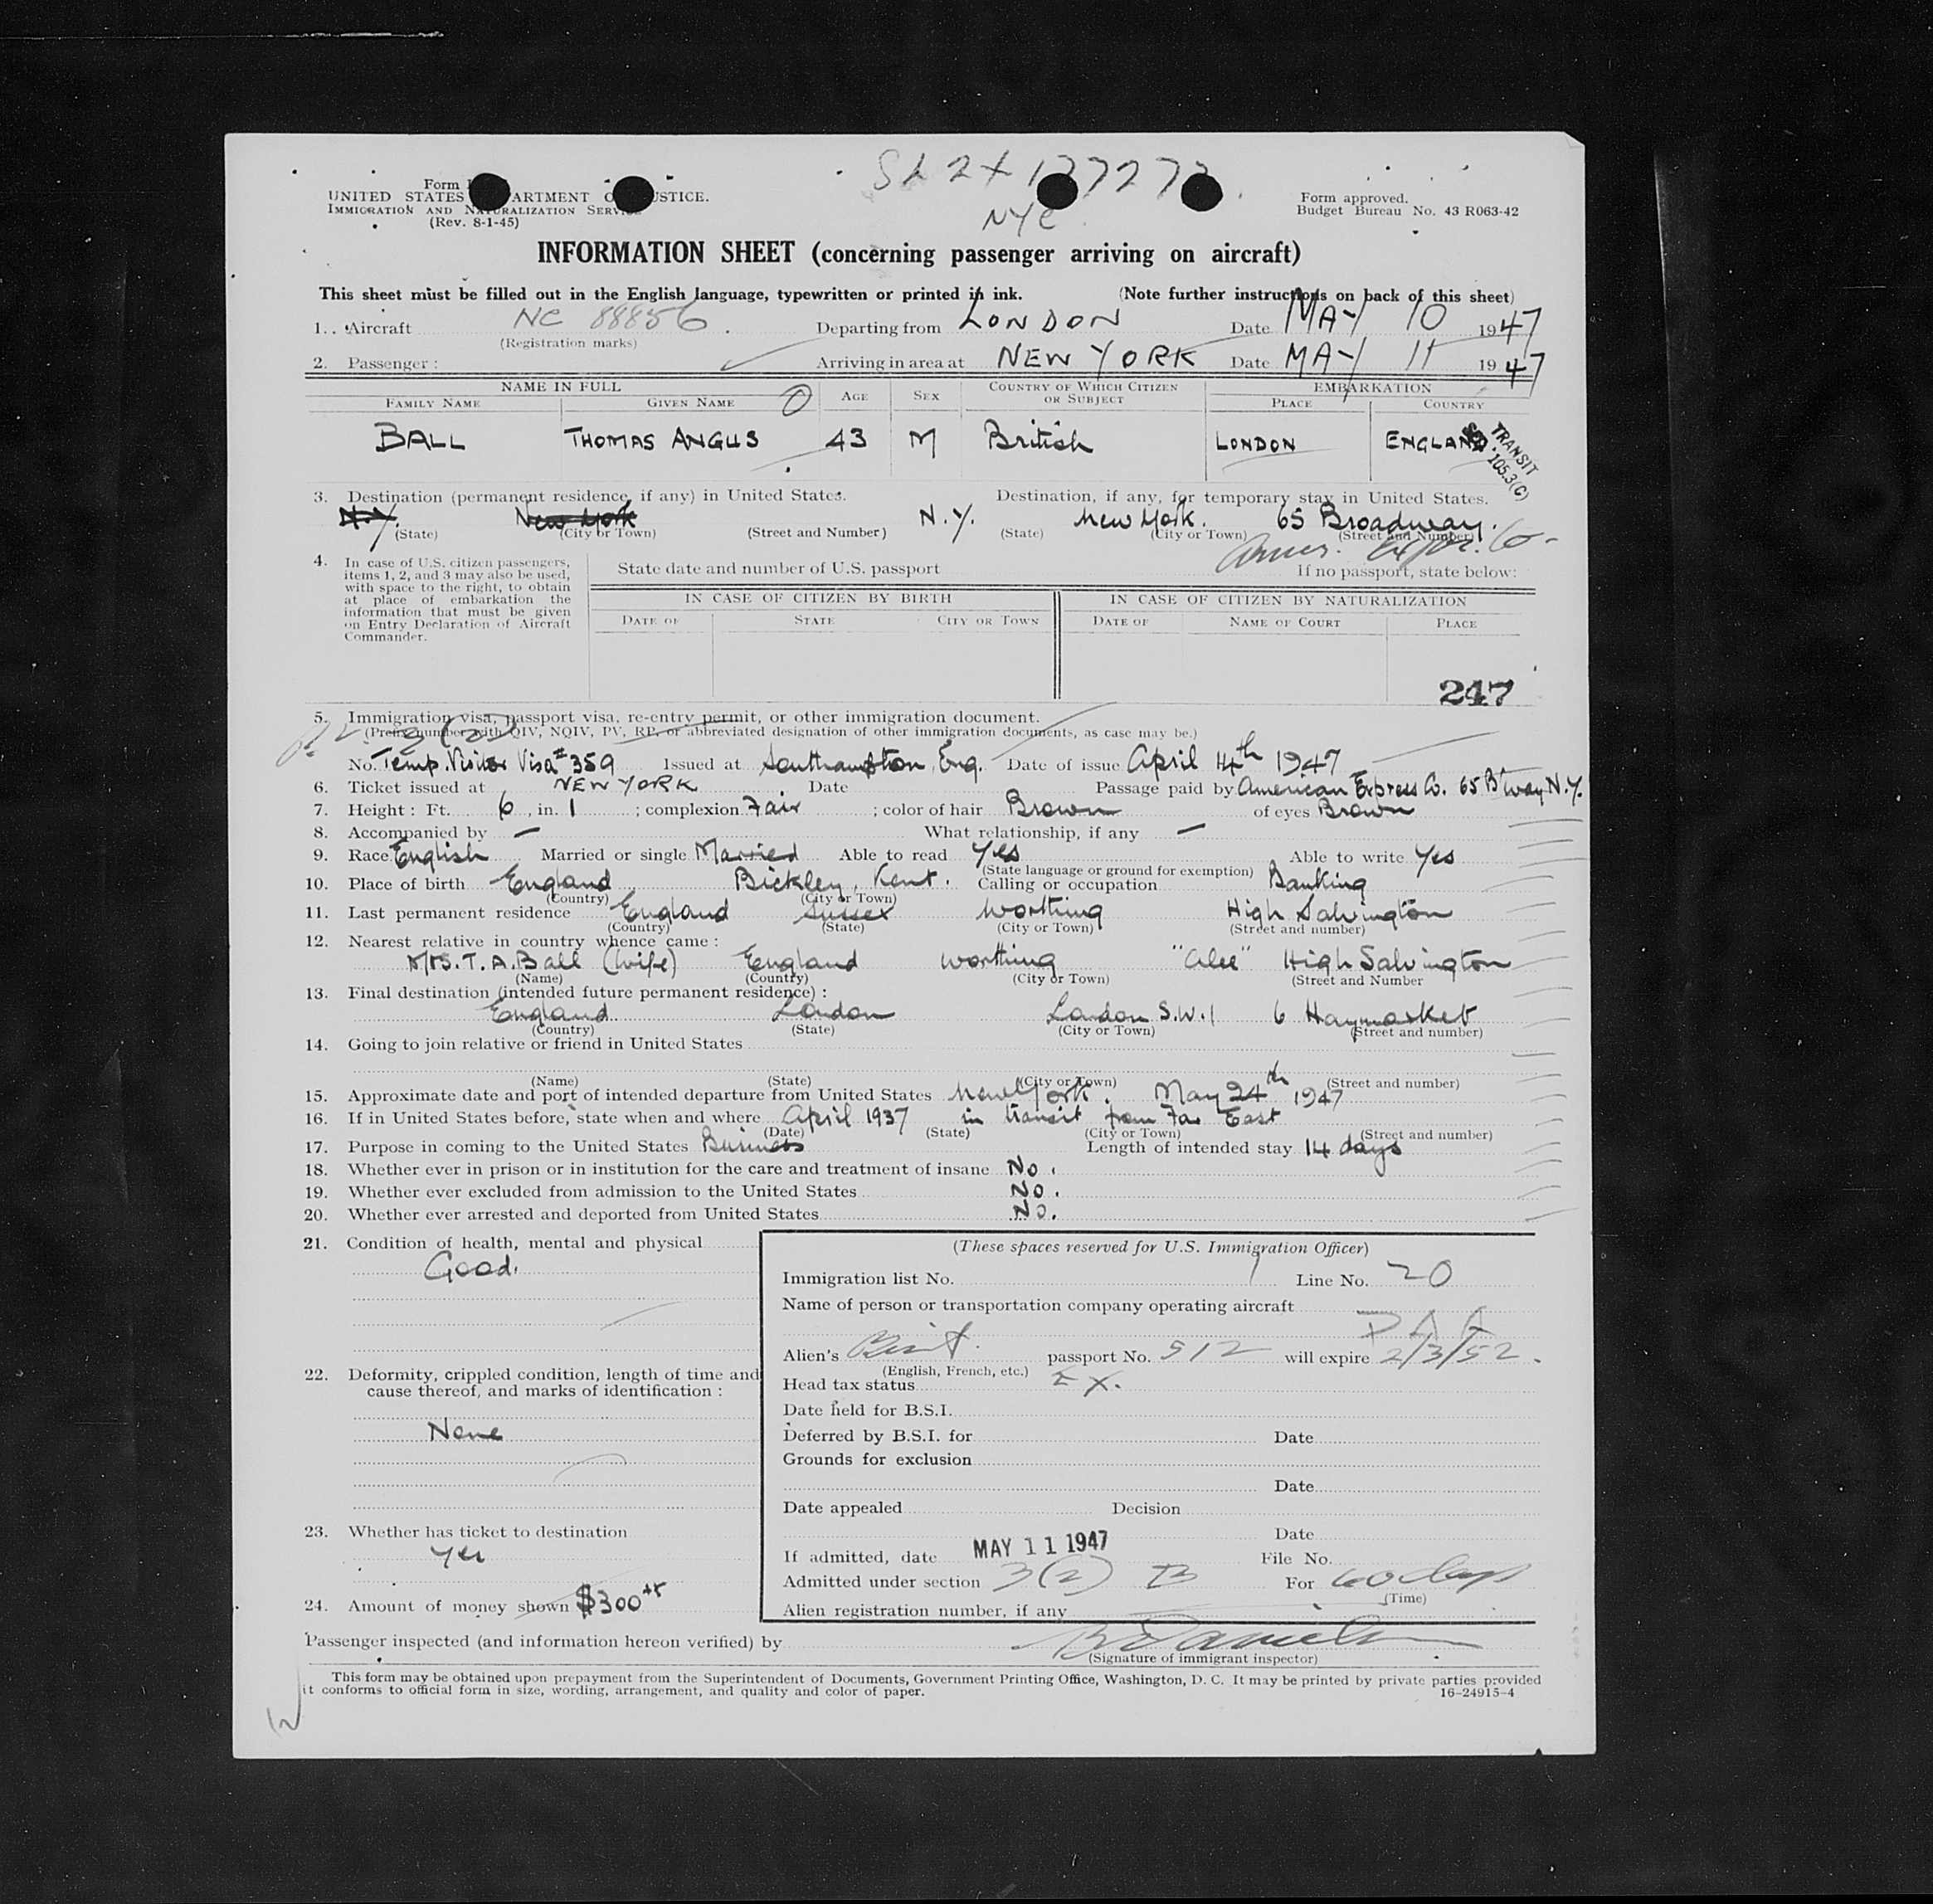 SL 2X 137273
Form I
UNITED STATES DEPARTMENT OF JUSTICE.
IMMIGRATION AND NATURALIZATION SERVICE
(Rev. 8-1-45)
NYC
Form approved.
Budget Bureau No. 43 R063-42
INFORMATION SHEET (concerning passenger arriving on aircraft)
This sheet must be filled out in the English language, typewritten or printed in ink. (Note further instructions on back of this sheet)
1. Aircraft NC 88856 Departing from LONDON Date MAY 10 1947
(Registration marks)
2. Passenger: Arriving in area at NEW YORK Date MAY 11 1947
NAME IN FULL AGE SEX COUNTRY OF WHICH CITIZEN OR SUBJECT EMBARKATION
FAMILY NAME GIVEN NAME PLACE COUNTRY
BALL THOMAS ANGUS 43 M British LONDON ENGLAND
TRANSIT
105.3(C)
3. Destination (permanent residence, if any) in United States. Destination, if any, for temporary stay in United States.
N.Y. New York N.Y. New York. 65 Broadway.
(State) (City or Town) (Street and Number) (State) (City or Town) (Street and Number)
Amer. Expr. Co.
4. In case of U.S. citizen passengers, items 1, 2, and 3 may also be used, with space to the right, to obtain at place of embarkation the information that must be given on Entry Declaration of Aircraft Commander.
State date and number of U.S. passport If no passport, state below:
IN CASE OF CITIZEN BY BIRTH IN CASE OF CITIZEN BY NATURALIZATION
DATE OF STATE CITY OR TOWN DATE OF NAME OF COURT PLACE
247
5. Immigration visa, passport visa, re-entry permit, or other immigration document.
(Prefix number with QIV, NQIV, PV, RP, or abbreviated designation of other immigration documents, as case may be.)
3(2)
No. Temp. Visitor Visa #359 Issued at Southampton, Eng. Date of issue April 14th 1947
6. Ticket issued at NEW YORK Date Passage paid by American Express Co. 65 B'way N.Y.
7. Height: Ft. 6, in. 1; complexion Fair; color of hair Brown of eyes Brown
8. Accompanied by — What relationship, if any —
9. Race English Married or single Married Able to read Yes Able to write Yes
(State language or ground for exemption)
10. Place of birth England Bickley, Kent. Calling or occupation Banking
(Country) (City or Town)
11. Last permanent residence England Sussex Worthing High Salvington
(Country) (State) (City or Town) (Street and number)
12. Nearest relative in country whence came:
Mrs. T. A. Ball (Wife) England Worthing High Salvington
(Name) (Country) (City or Town) (Street and Number
13. Final destination (intended future permanent residence):
England London London S.W.1 6 Haymarket
(Country) (State) (City or Town) (Street and number)
14. Going to join relative or friend in United States
(Name) (State) (City or Town) (Street and number)
15. Approximate date and port of intended departure from United States New York. May 24th 1947
16. If in United States before, state when and where April 1937 in transit from Far East
(Date) (State) (City or Town) (Street and number)
17. Purpose in coming to the United States Business Length of intended stay 14 days
18. Whether ever in prison or in institution for the care and treatment of insane No.
19. Whether ever excluded from admission to the United States No.
20. Whether ever arrested and deported from United States No.
21. Condition of health, mental and physical
Good.
22. Deformity, crippled condition, length of time and cause thereof, and marks of identification:
None
23. Whether has ticket to destination
Yes
24. Amount of money shown $300
(These spaces reserved for U.S. Immigration Officer)
Immigration list No. 1 Line No. 20
Name of person or transportation company operating aircraft
PAA
Alien's Brit. passport No. 512 will expire 2/3/52.
(English, French, etc.)
Head tax status Ex.
Date held for B.S.I.
Deferred by B.S.I. for Date
Grounds for exclusion
Date
Date appealed Decision
Date
If admitted, date MAY 11 1947 File No.
Admitted under section 3(2) B For 60 days
(Time)
Alien registration number, if any
Passenger inspected (and information hereon verified) by
(Signature of immigrant inspector)
This form may be obtained upon prepayment from the Superintendent of Documents, Government Printing Office, Washington, D. C. It may be printed by private parties provided
it conforms to official form in size, wording, arrangement, and quality and color of paper. 16-24915-4